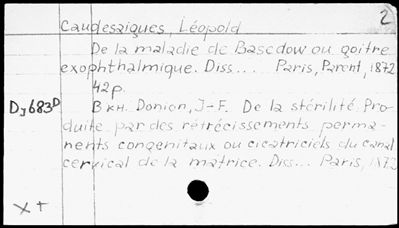 2
Caudesaigues, Léopold
De la maladie de Basedow ou goitre
exophthalmique. Diss.... Paris, Parent, 1872
42p.
Dj683D В кн. Donion, J-F. De la stérilité Pro-
duite par des rétrécissements perma-
nents congenitaux ou cicatriciels du canal
cervical de la matrice. Diss... Paris, 1872
X T